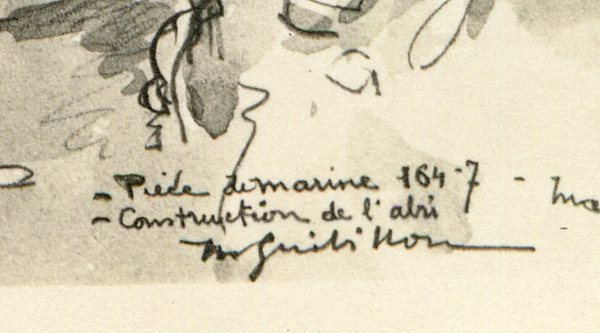 - Pièce de marine 164-7 -
- Construction de l'abri